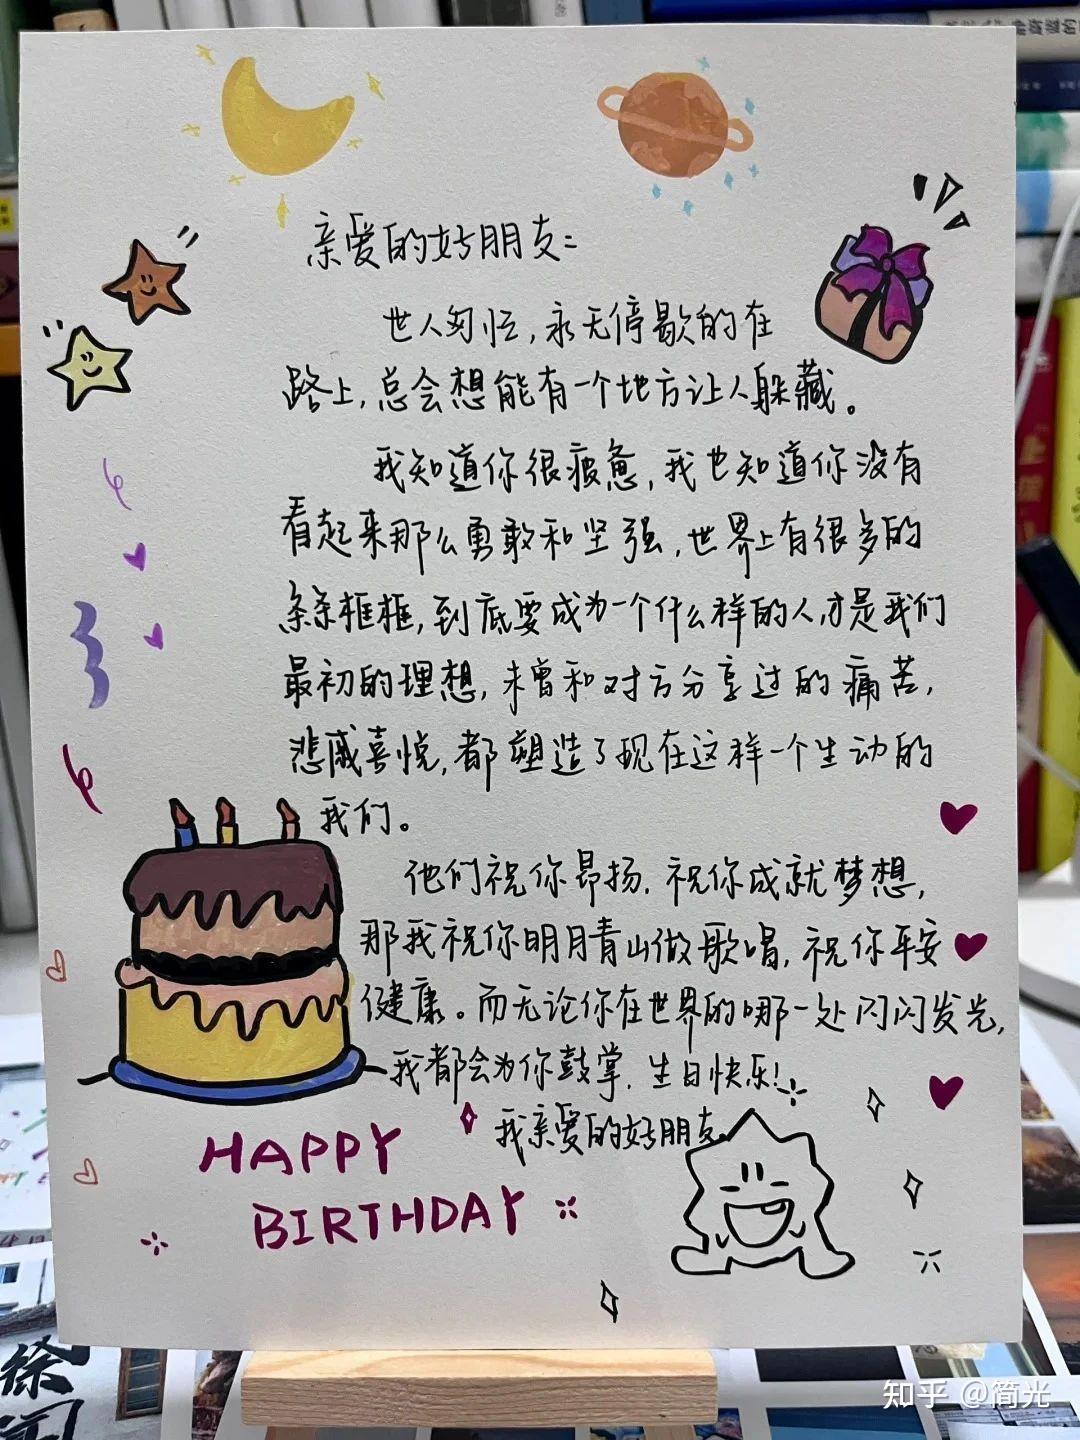 亲爱的好朋友:
世人匆忙,永无停歇的在
路上,总会想能有一个地方让人躲藏。
我知道你很疲惫,我也知道你没有
看起来那么勇敢和坚强,世界上有很多的
条条框框,到底要成为一个什么样的人,才是我们
最初的理想,未曾和对方分享过的痛苦,
悲戚喜悦,都塑造了现在这样一个生动的
我们。
他们祝你昂扬,祝你成就梦想,
那我祝你明月青山做歌唱,祝你平安
健康。而无论你在世界的哪一处闪闪发光,
我都会为你鼓掌,生日快乐!
我亲爱的好朋友。
HAPPY
BIRTHDAY
徐闻
知乎 @简光